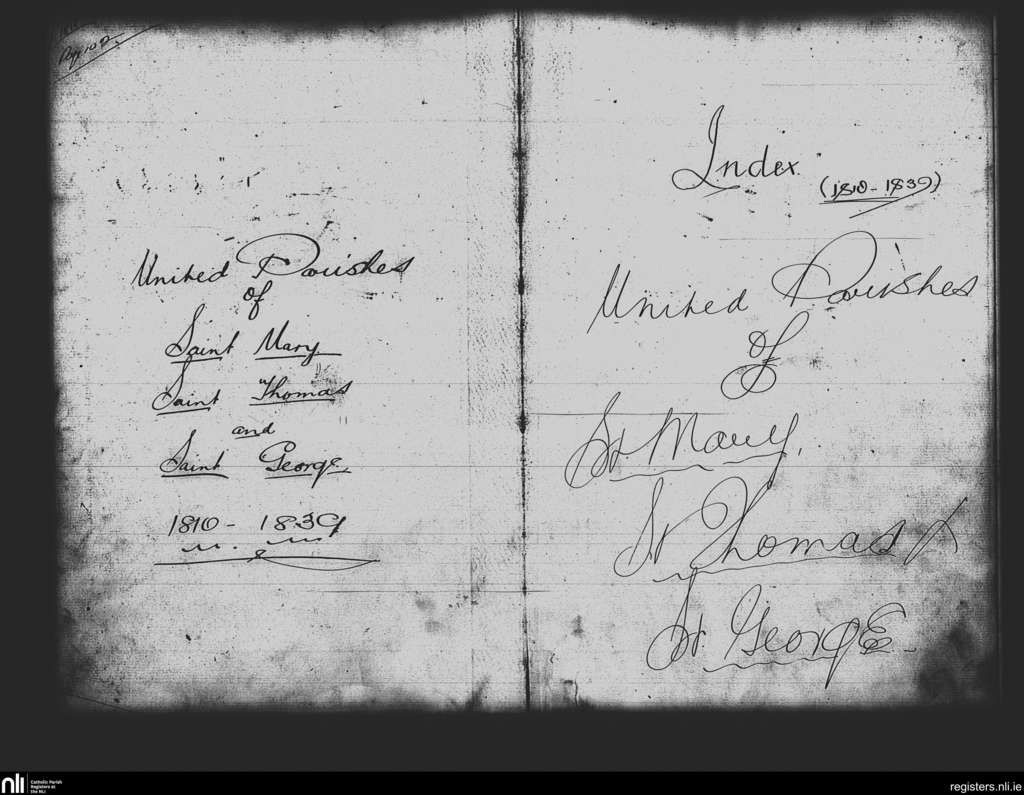 United Parishes
of
Saint Mary
Saint Thomas
and
Saint George
1810 - 1839
Index
(1810 - 1839)
United Parishes
of
St Mary.
St Thomas &
St George
nli
Catholic Parish
Registers at
the NLI
registers.nli.ie